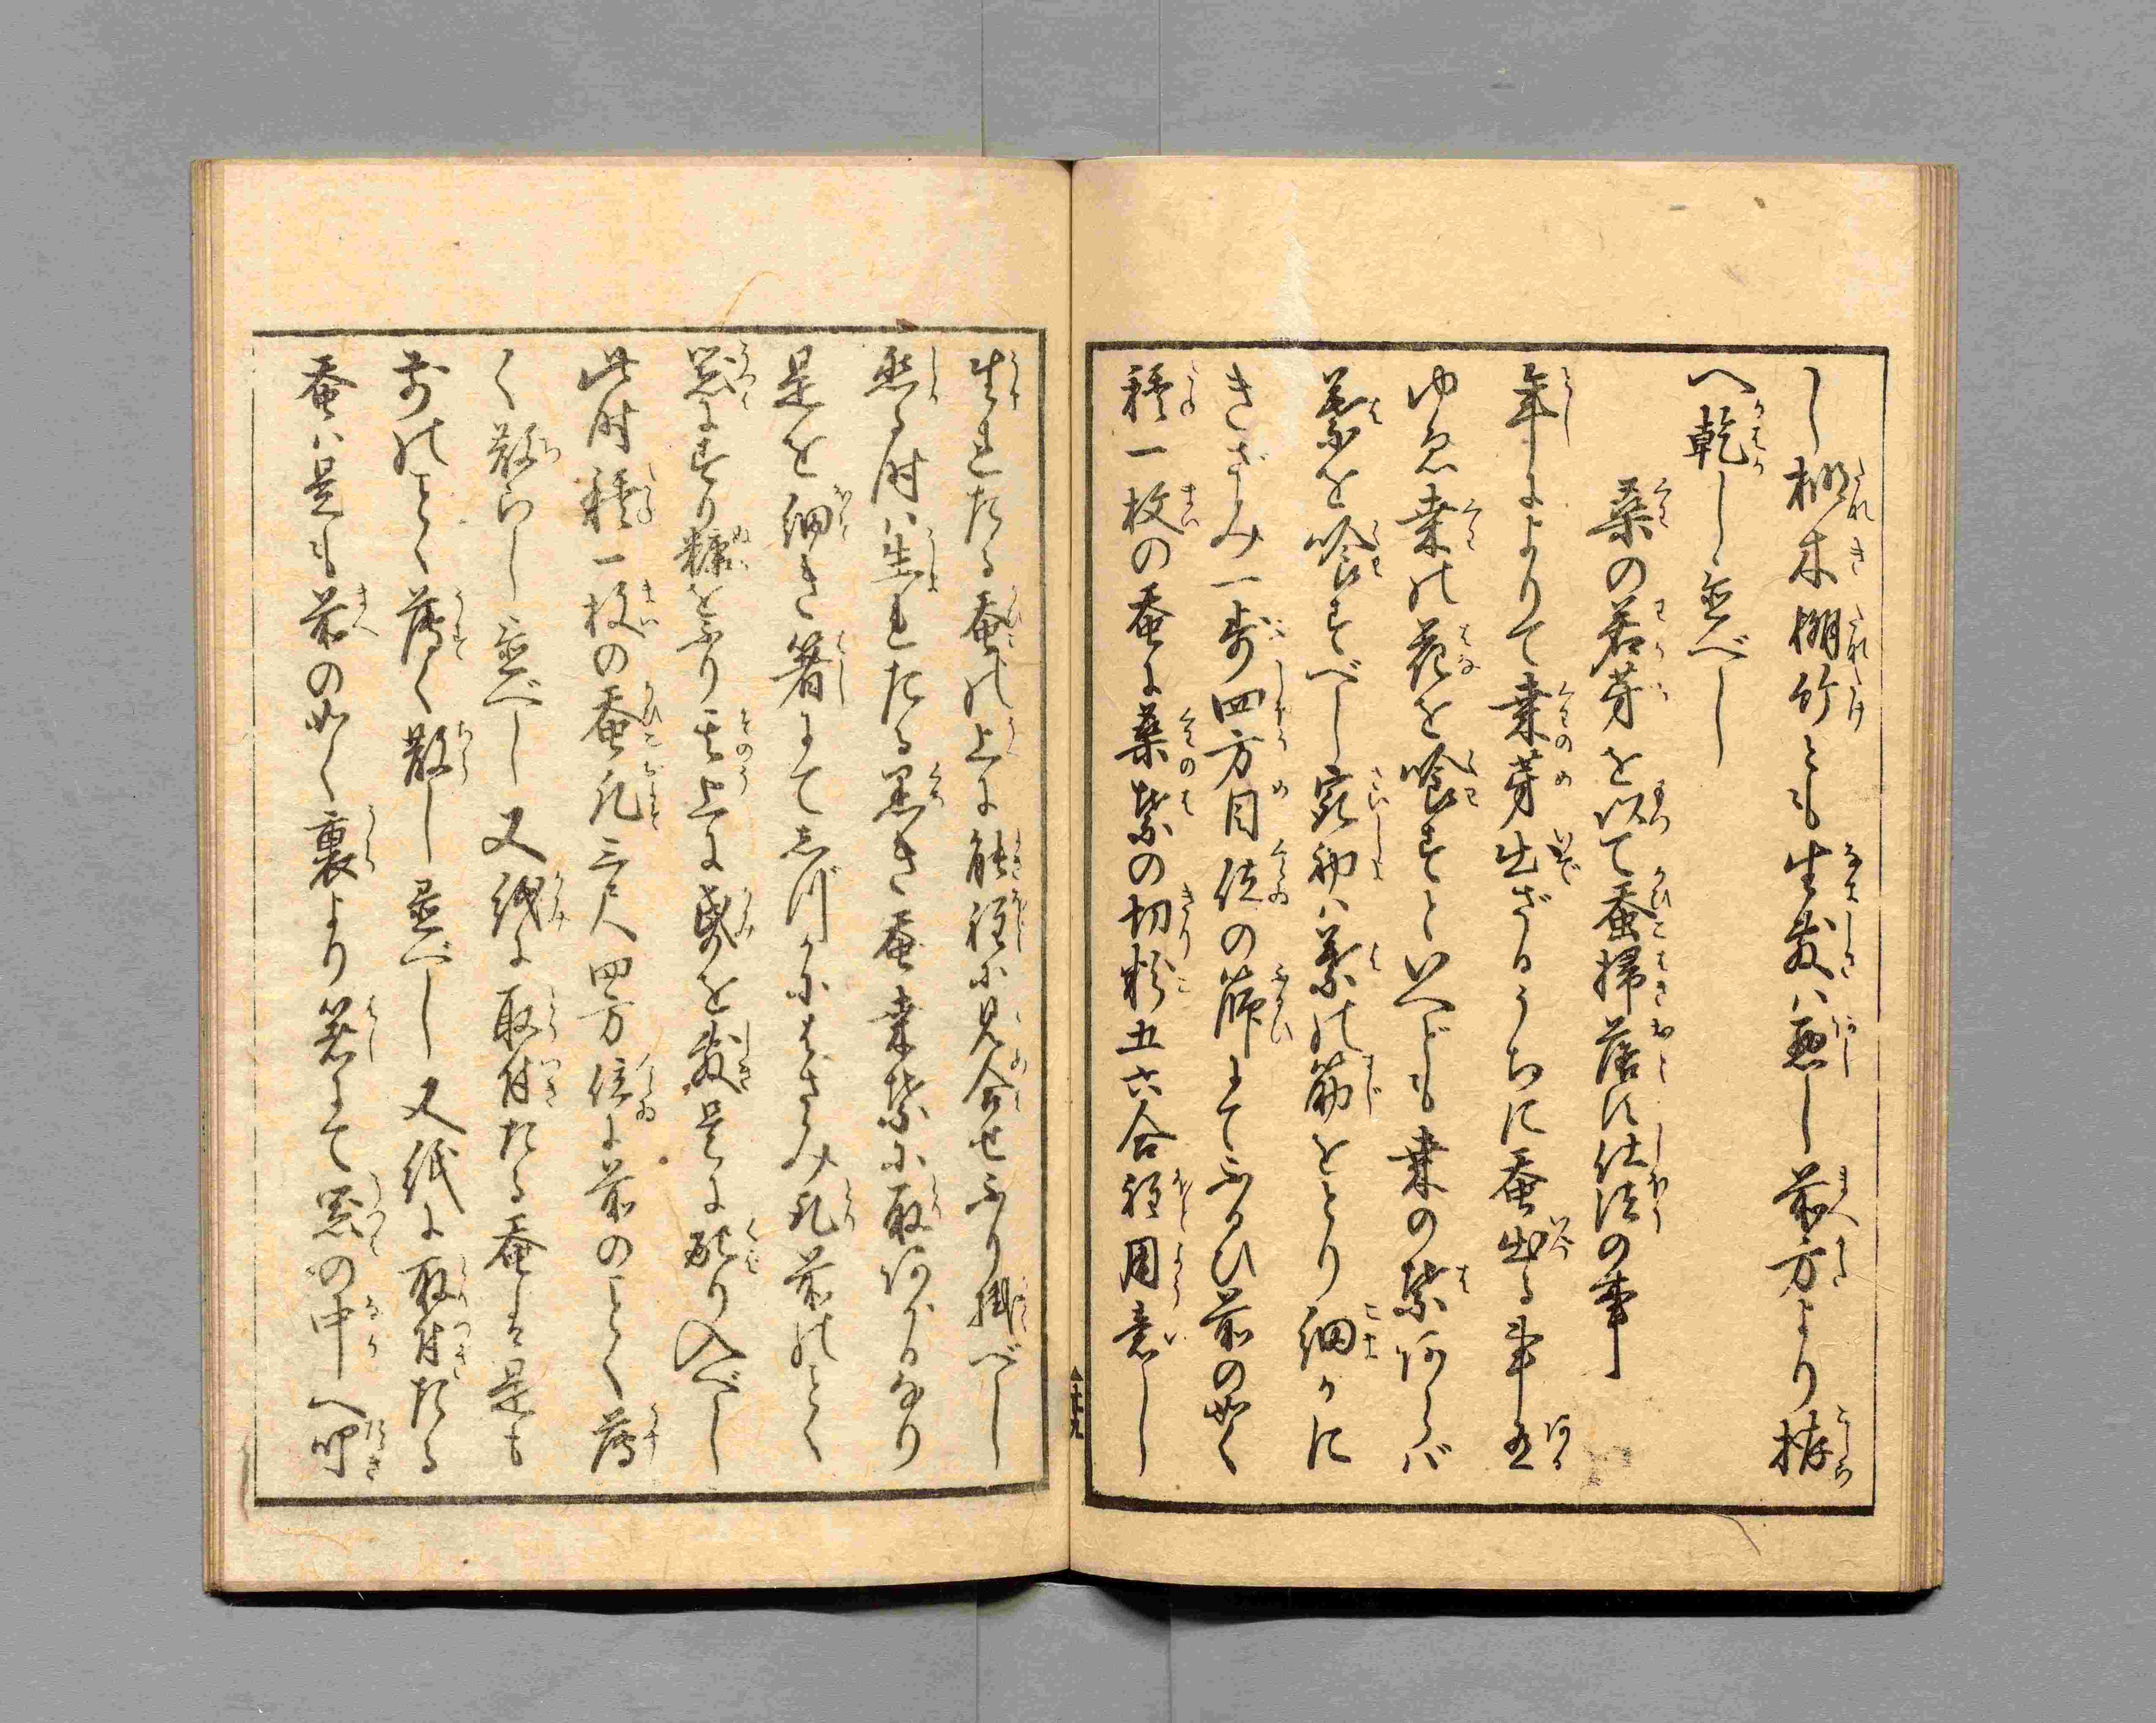 し棚木棚竹とも生敷ハ悪し前方より拵
へ乾し置べし
桑の若芽を以て蚕掃落に仕法の事
年によりて桒芽出ざるうちに蚕出る事有
ゆへ桒の花を喰すといへども桒の葉あらバ
葉を喰すべし最初ハ葉の筋をとり細かに
きざみ一歩四方目位の篩にてふるひ前の如く
種一枚の蚕に桑葉の切粉五六合程用意し
生れたる蚕の上に能程に見合せふり掛べし
然る時ハ生れたる黒き蚕桒葉に取あがるなり
是を細き箸にてしづかにはさみ凡前のごとく
器にすり糠をふり其上に紙を敷是に配り入べし
此時種一枚の蚕凡三尺四方位に前のごとく薄
く散らし置べし又紙に取付たる蚕は是も
前のごとく薄く散し置べし又紙に取付たる
蚕ハ是も前の如く裏より箸にて器の中へ叩き